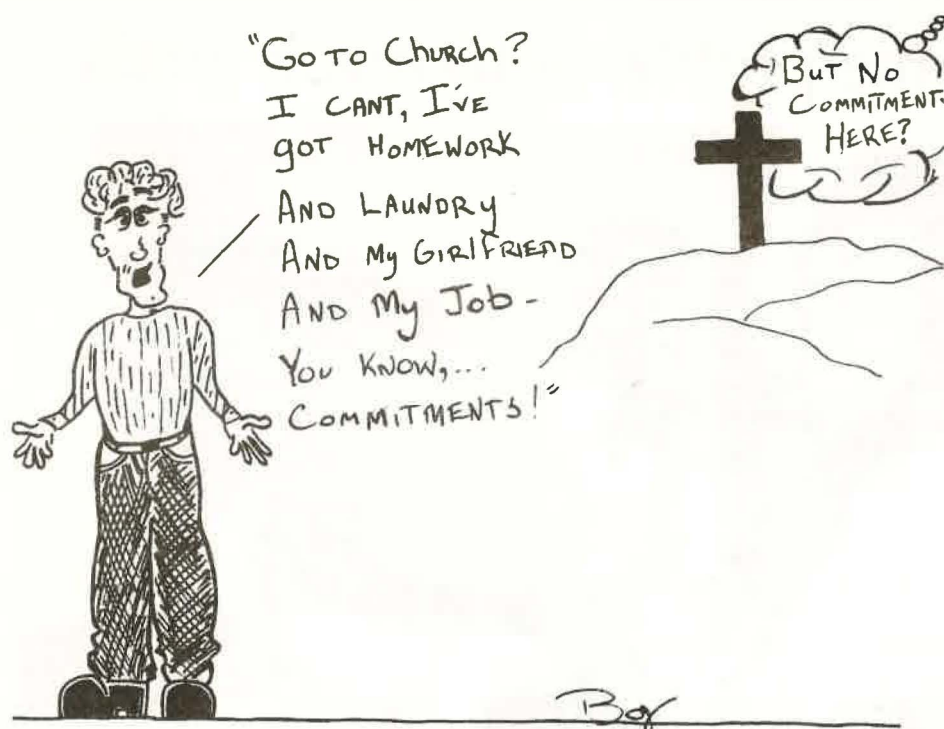 "Go To Church?
I CANT, I'VE
goT HOMEWORK
AND LAUNDRY
AND My GIRlFRIEND
AND My Job -
You KNOW,...
COMMITMENTS!"
BUT No
COMMITMENT
HERE?